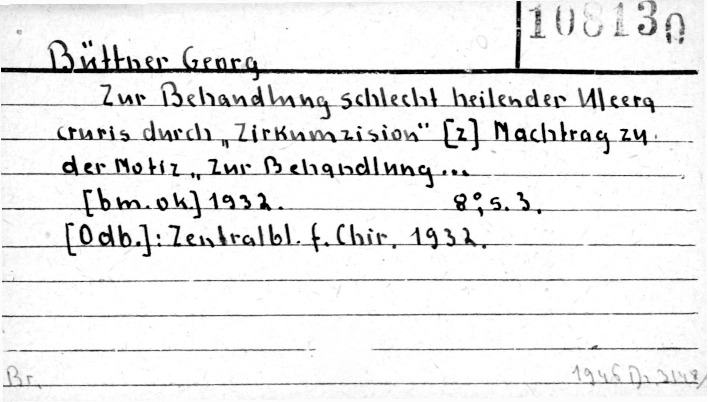 108130
Büttner Georg
Zur Behandlung schlecht heilender Ulcera
cruris durch „Zirkumzision" [z] Nachtrag zu
der Notiz „Zur Behandlung...
[bm. ok] 1932. 8°, s. 3.
[Odb.]: Zentralbl. f. Chir. 1932.
Br. 1945 D.